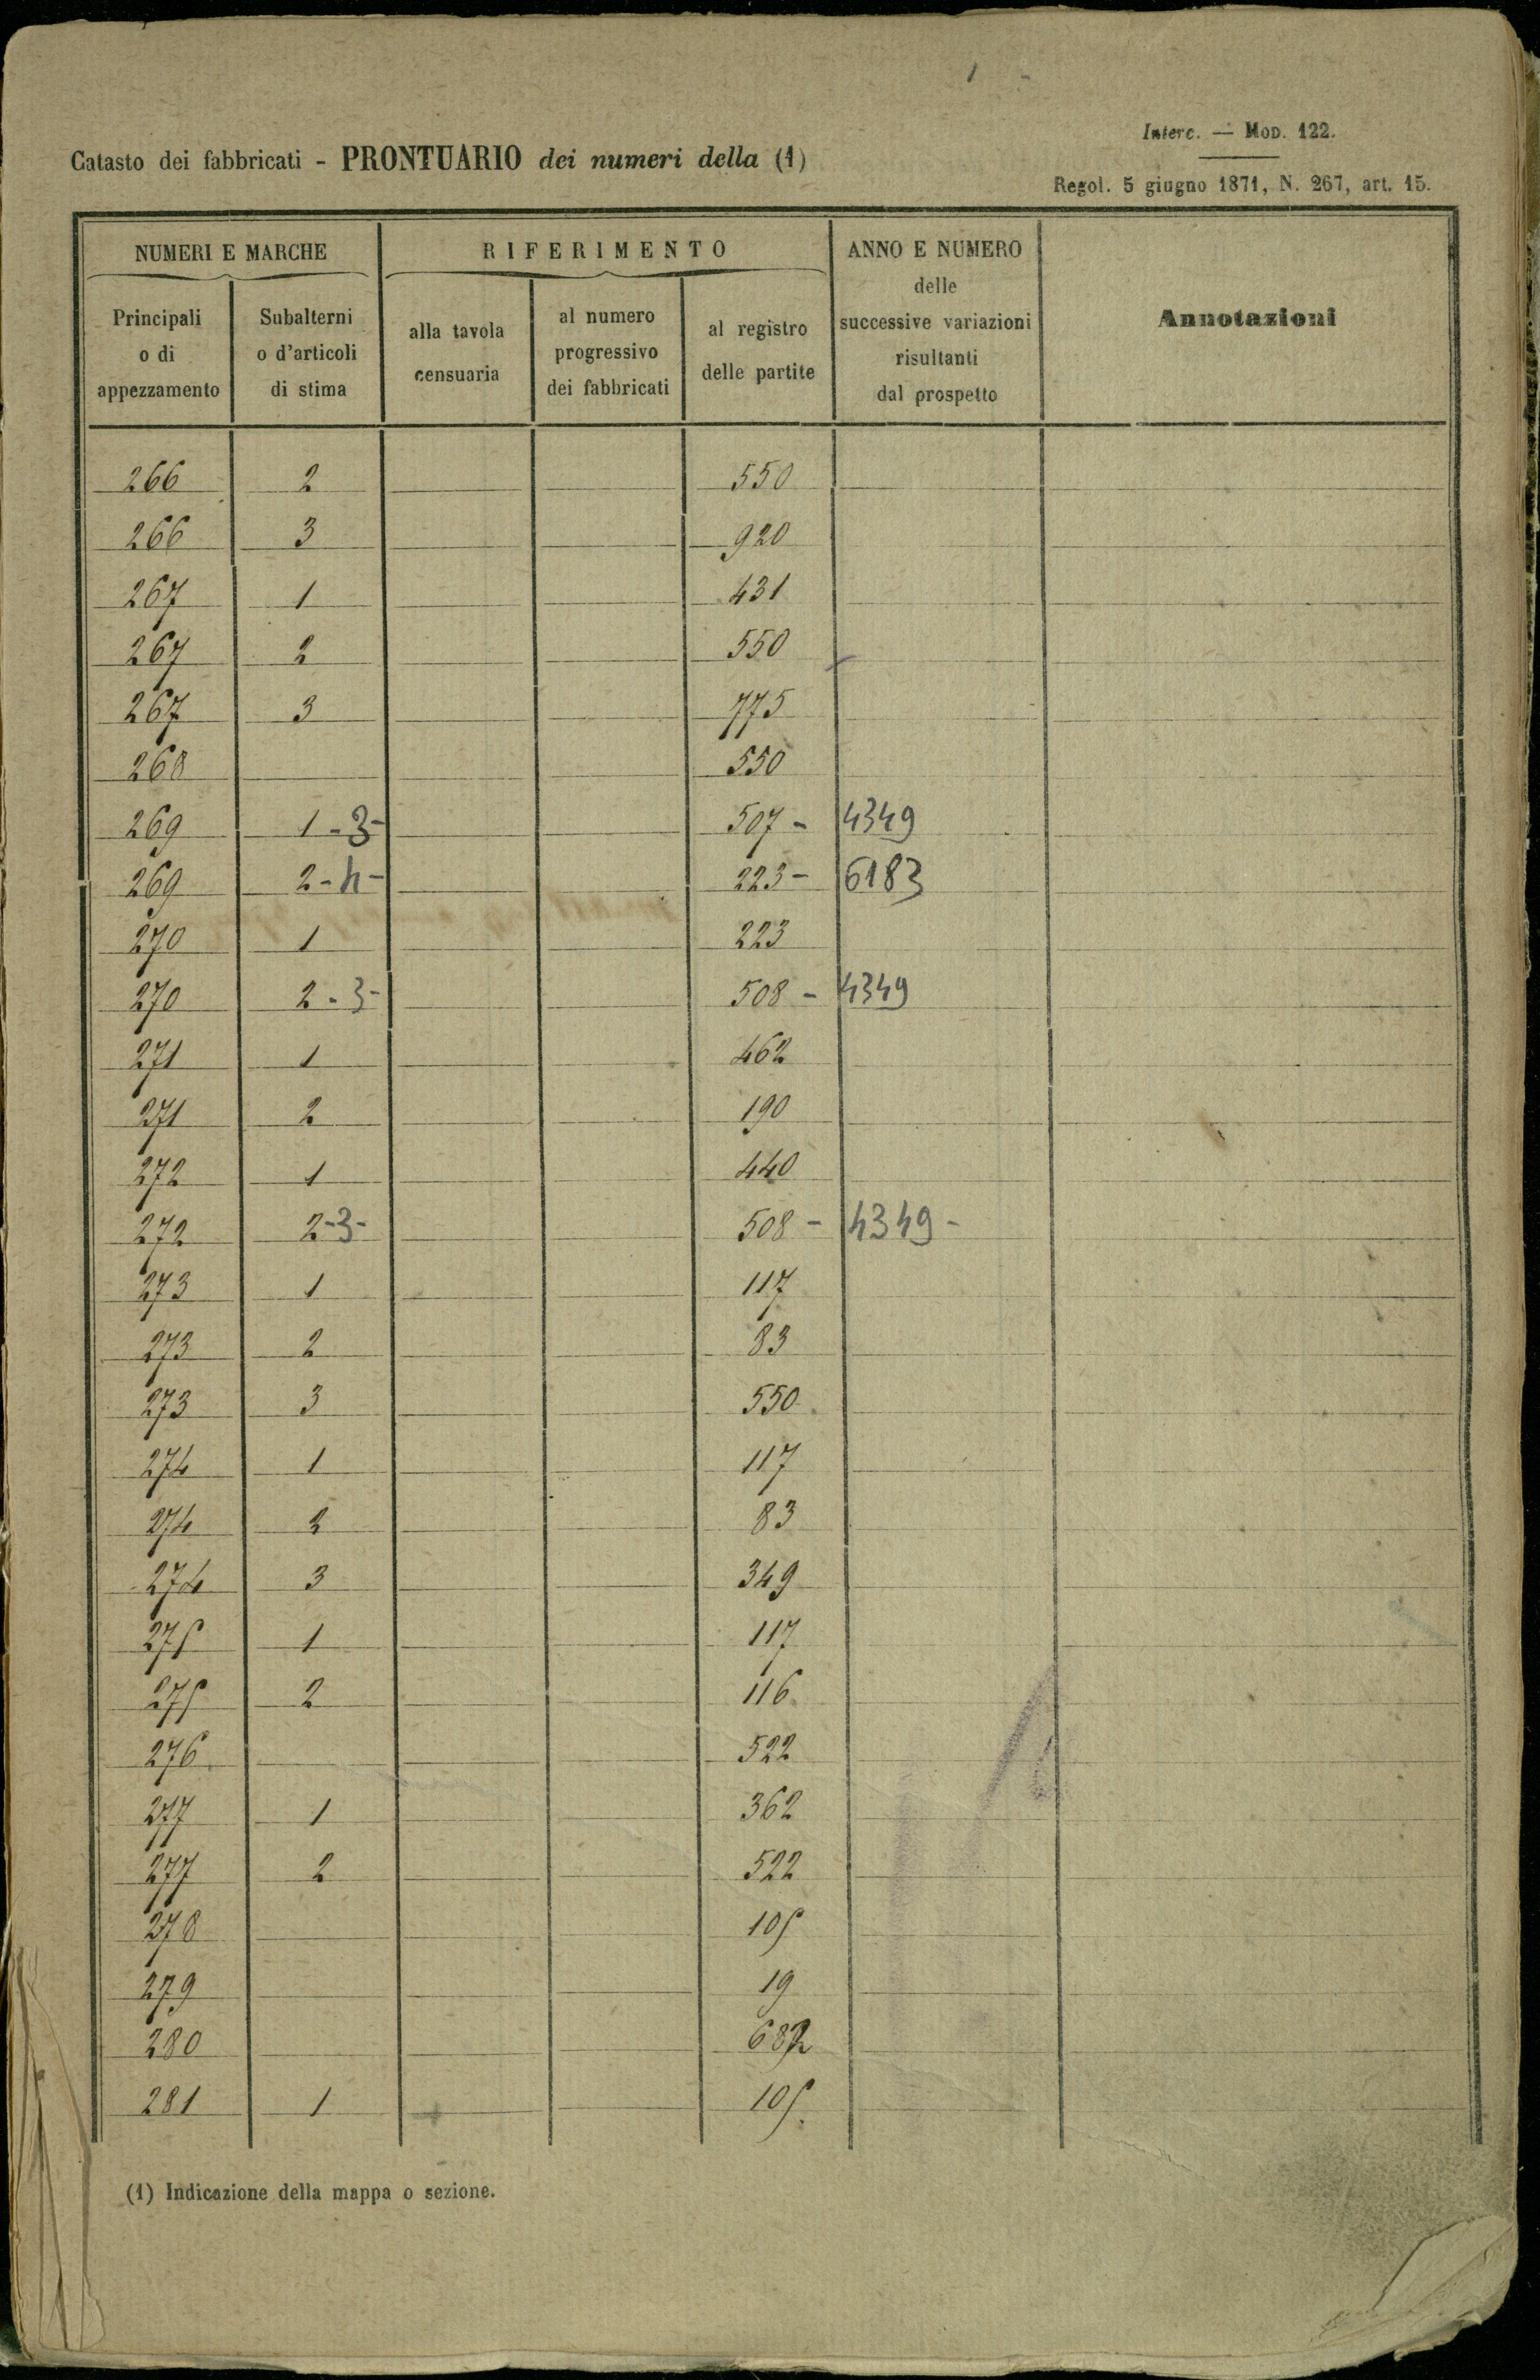 Interc. — Mod. 122.
Catasto dei fabbricati - PRONTUARIO dei numeri della (1)
Regol. 5 giugno 1871, N. 267, art. 15.
NUMERI E MARCHE
RIFERIMENTO
ANNO E NUMERO
delle
successive variazioni
risultanti
dal prospetto
Annotazioni
Principali
o di
appezzamento
Subalterni
o d'articoli
di stima
alla tavola
censuaria
al numero
progressivo
dei fabbricati
al registro
delle partite
266 2 550
266 3 920
267 1 431
267 2 550
267 3 775
268 550
269 1 - 3 - 507 - 4349
269 2 - 4 - 223 - 6183
270 1 223
270 2 - 3 - 508 - 4349
271 1 462
271 2 190
272 1 440
272 2 - 3 - 508 - 4349 -
273 1 117
273 2 83
273 3 550
274 1 117
274 2 83
274 3 349
275 1 117
275 2 116
276 522
277 1 362
277 2 522
278 105
279 19
280 682
281 1 105
(1) Indicazione della mappa o sezione.